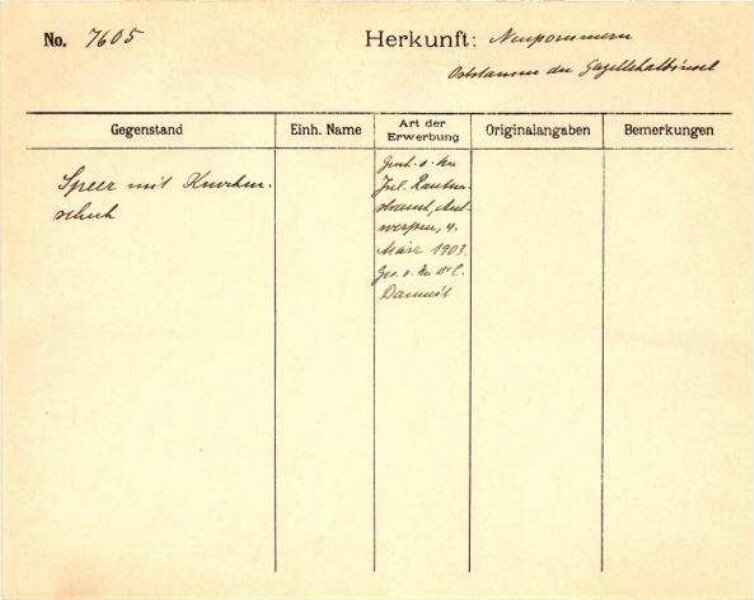 No. 7605
Herkunft: Neupommern
Oststamm der Gazellehalbinsel
Gegenstand
Einh. Name
Art der Erwerbung
Originalangaben
Bemerkungen
Speer mit Knochen-
schuh
Gesch. v. Hn
Jul. Rauten-
strauch, Ant-
werpen, 4.
März 1903.
Ges. v. Hn Dr C.
Danneil